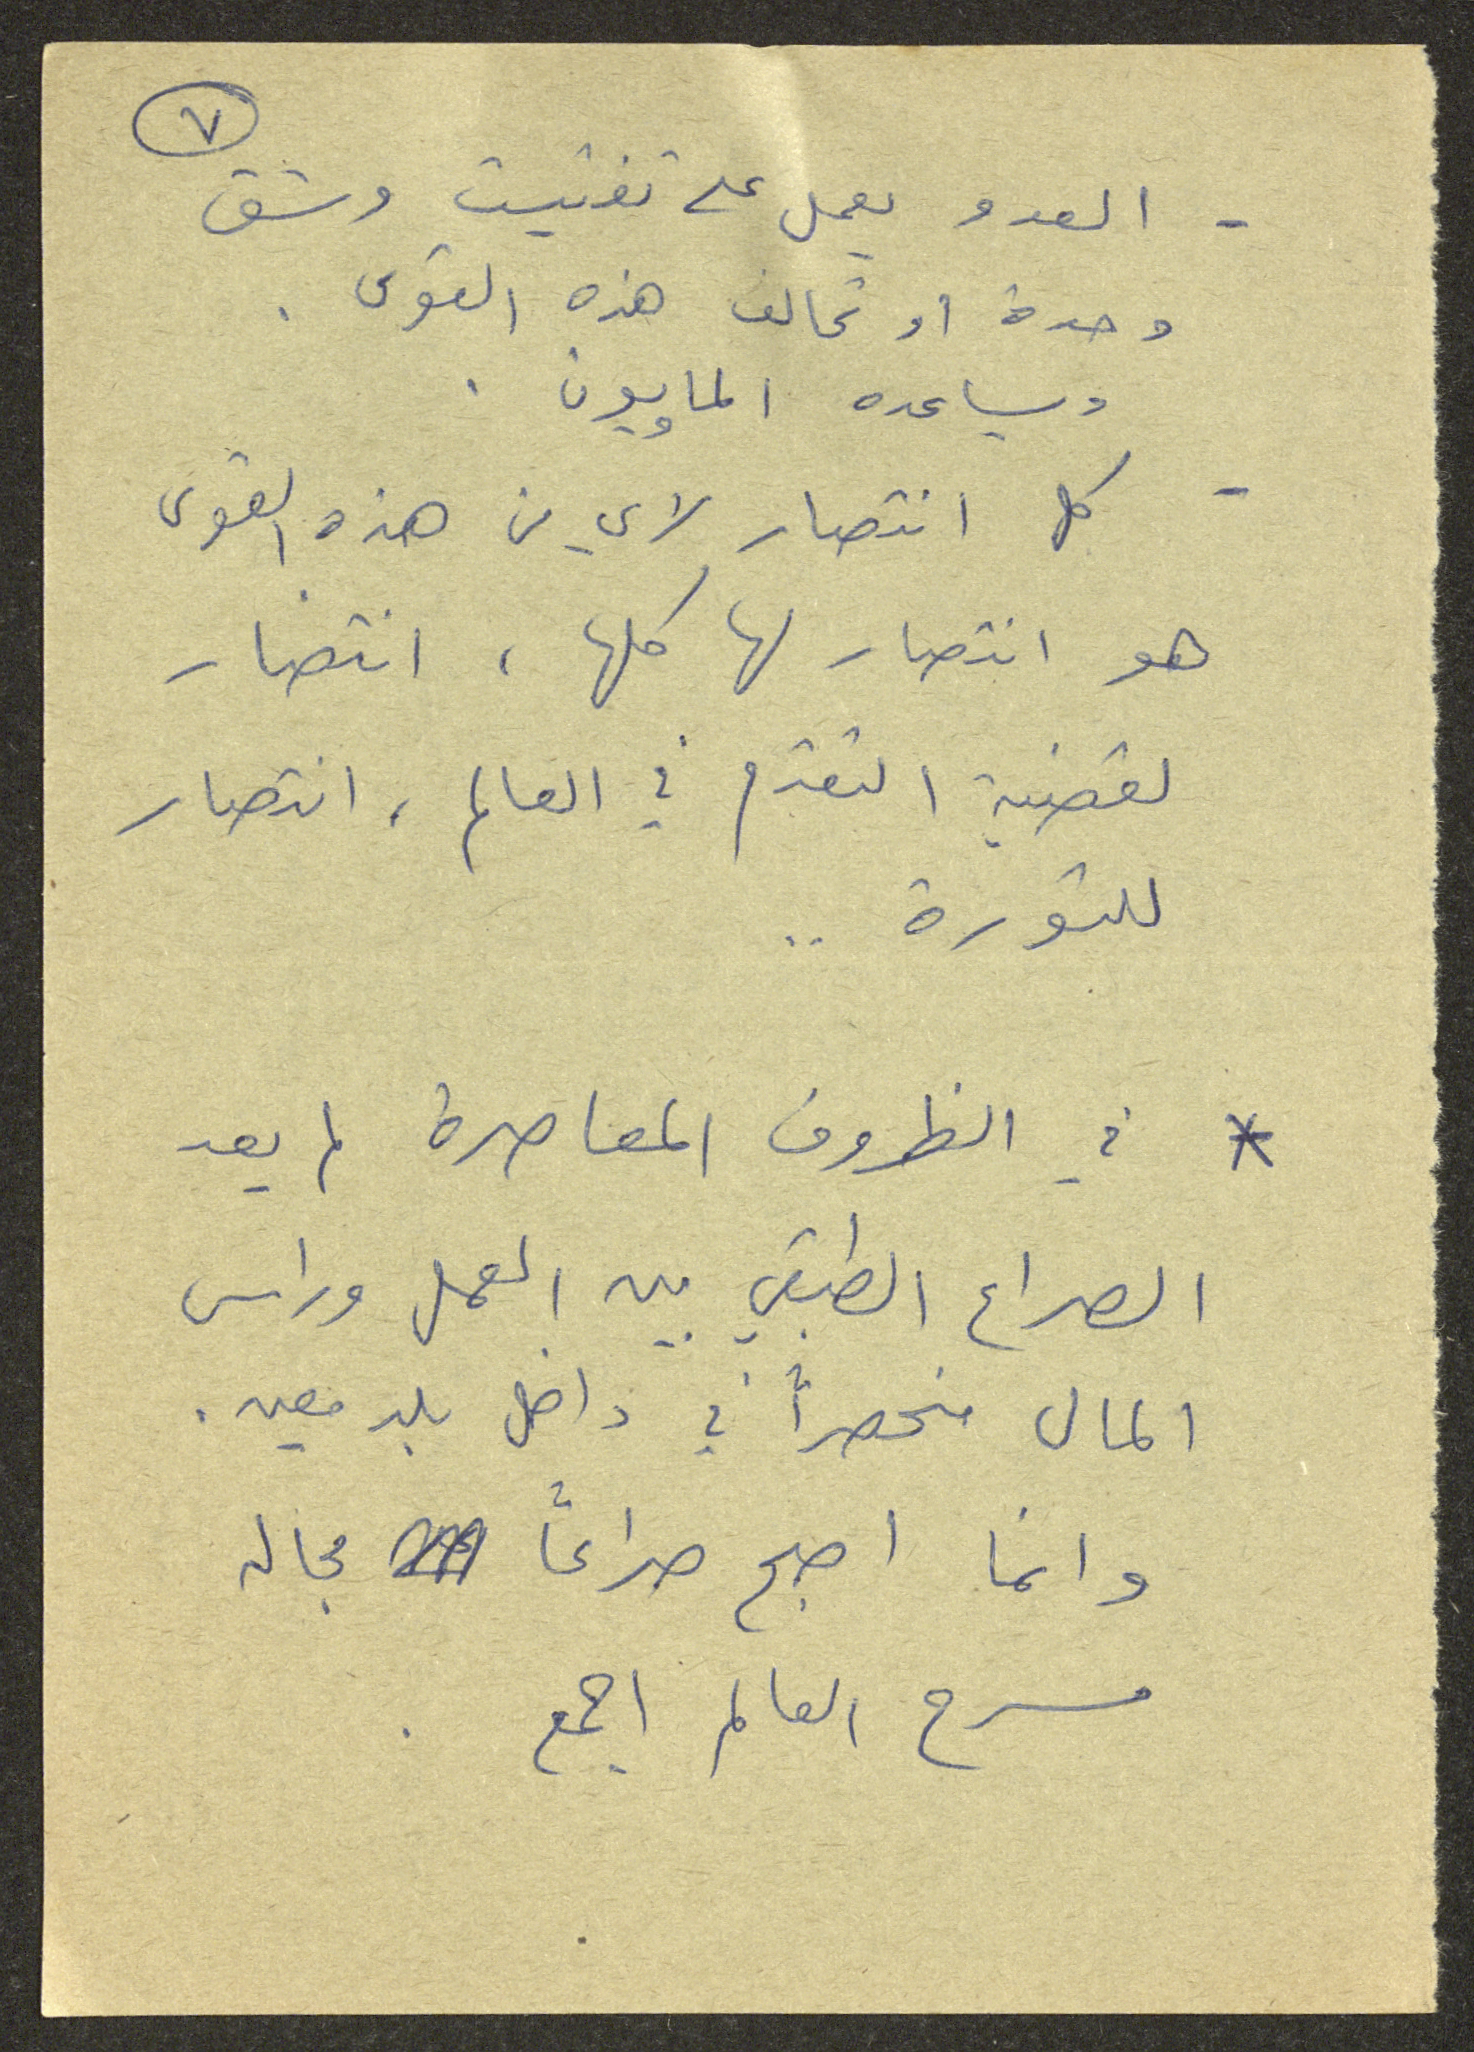 ٧
- العدو يعمل على تفتيت وشق
وحدة او تحالف هذه القوى .
ويساعده الماويون .
- كل انتصار لاي من هذه القوى
هو انتصار لها كلها ، انتصار
لقضية التقدم في العالم ، انتصار
للثورة ..
* في الظروف المعاصرة لم يعد
الصراع الطبقي بين العمل وراس
المال منحصراً في داخل بلد معين .
وانما اصبح صراعاً مجاله
مسرح العالم اجمع .